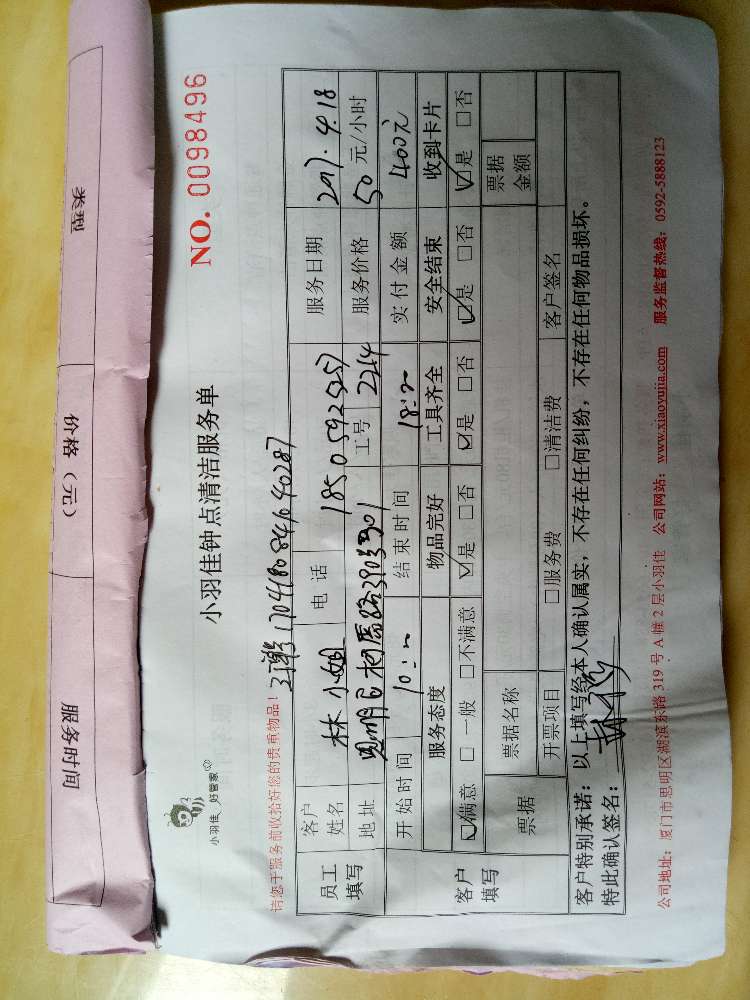 类型 价格（元） 服务时间
小羽佳 好管家
小羽佳钟点清洁服务单
NO. 0098496
请您于服务前收拾好您的贵重物品！
170418084640287
员工填写
客户姓名 林小姐 电话 18505925257 服务日期 2017.4.18
地址 思明区 301 工号 2214 服务价格 50元/小时
开始时间 10: 结束时间 18: 实付金额 400元
客户填写
服务态度 物品完好 工具齐全 安全结束 收到卡片
☑满意 □一般 □不满意 ☑是 □否 ☑是 □否 ☑是 □否 ☑是 □否
票据 票据名称 票据金额
开票项目 □服务费 □清洁费 客户签名
客户特别承诺：以上填写经本人确认属实，不存在任何纠纷，不存在任何物品损坏。
特此确认签名：
公司地址：厦门市思明区湖滨东路319号A幢2层小羽佳 公司网站：www.xiaoyujia.com 服务监督热线：0592-5888123